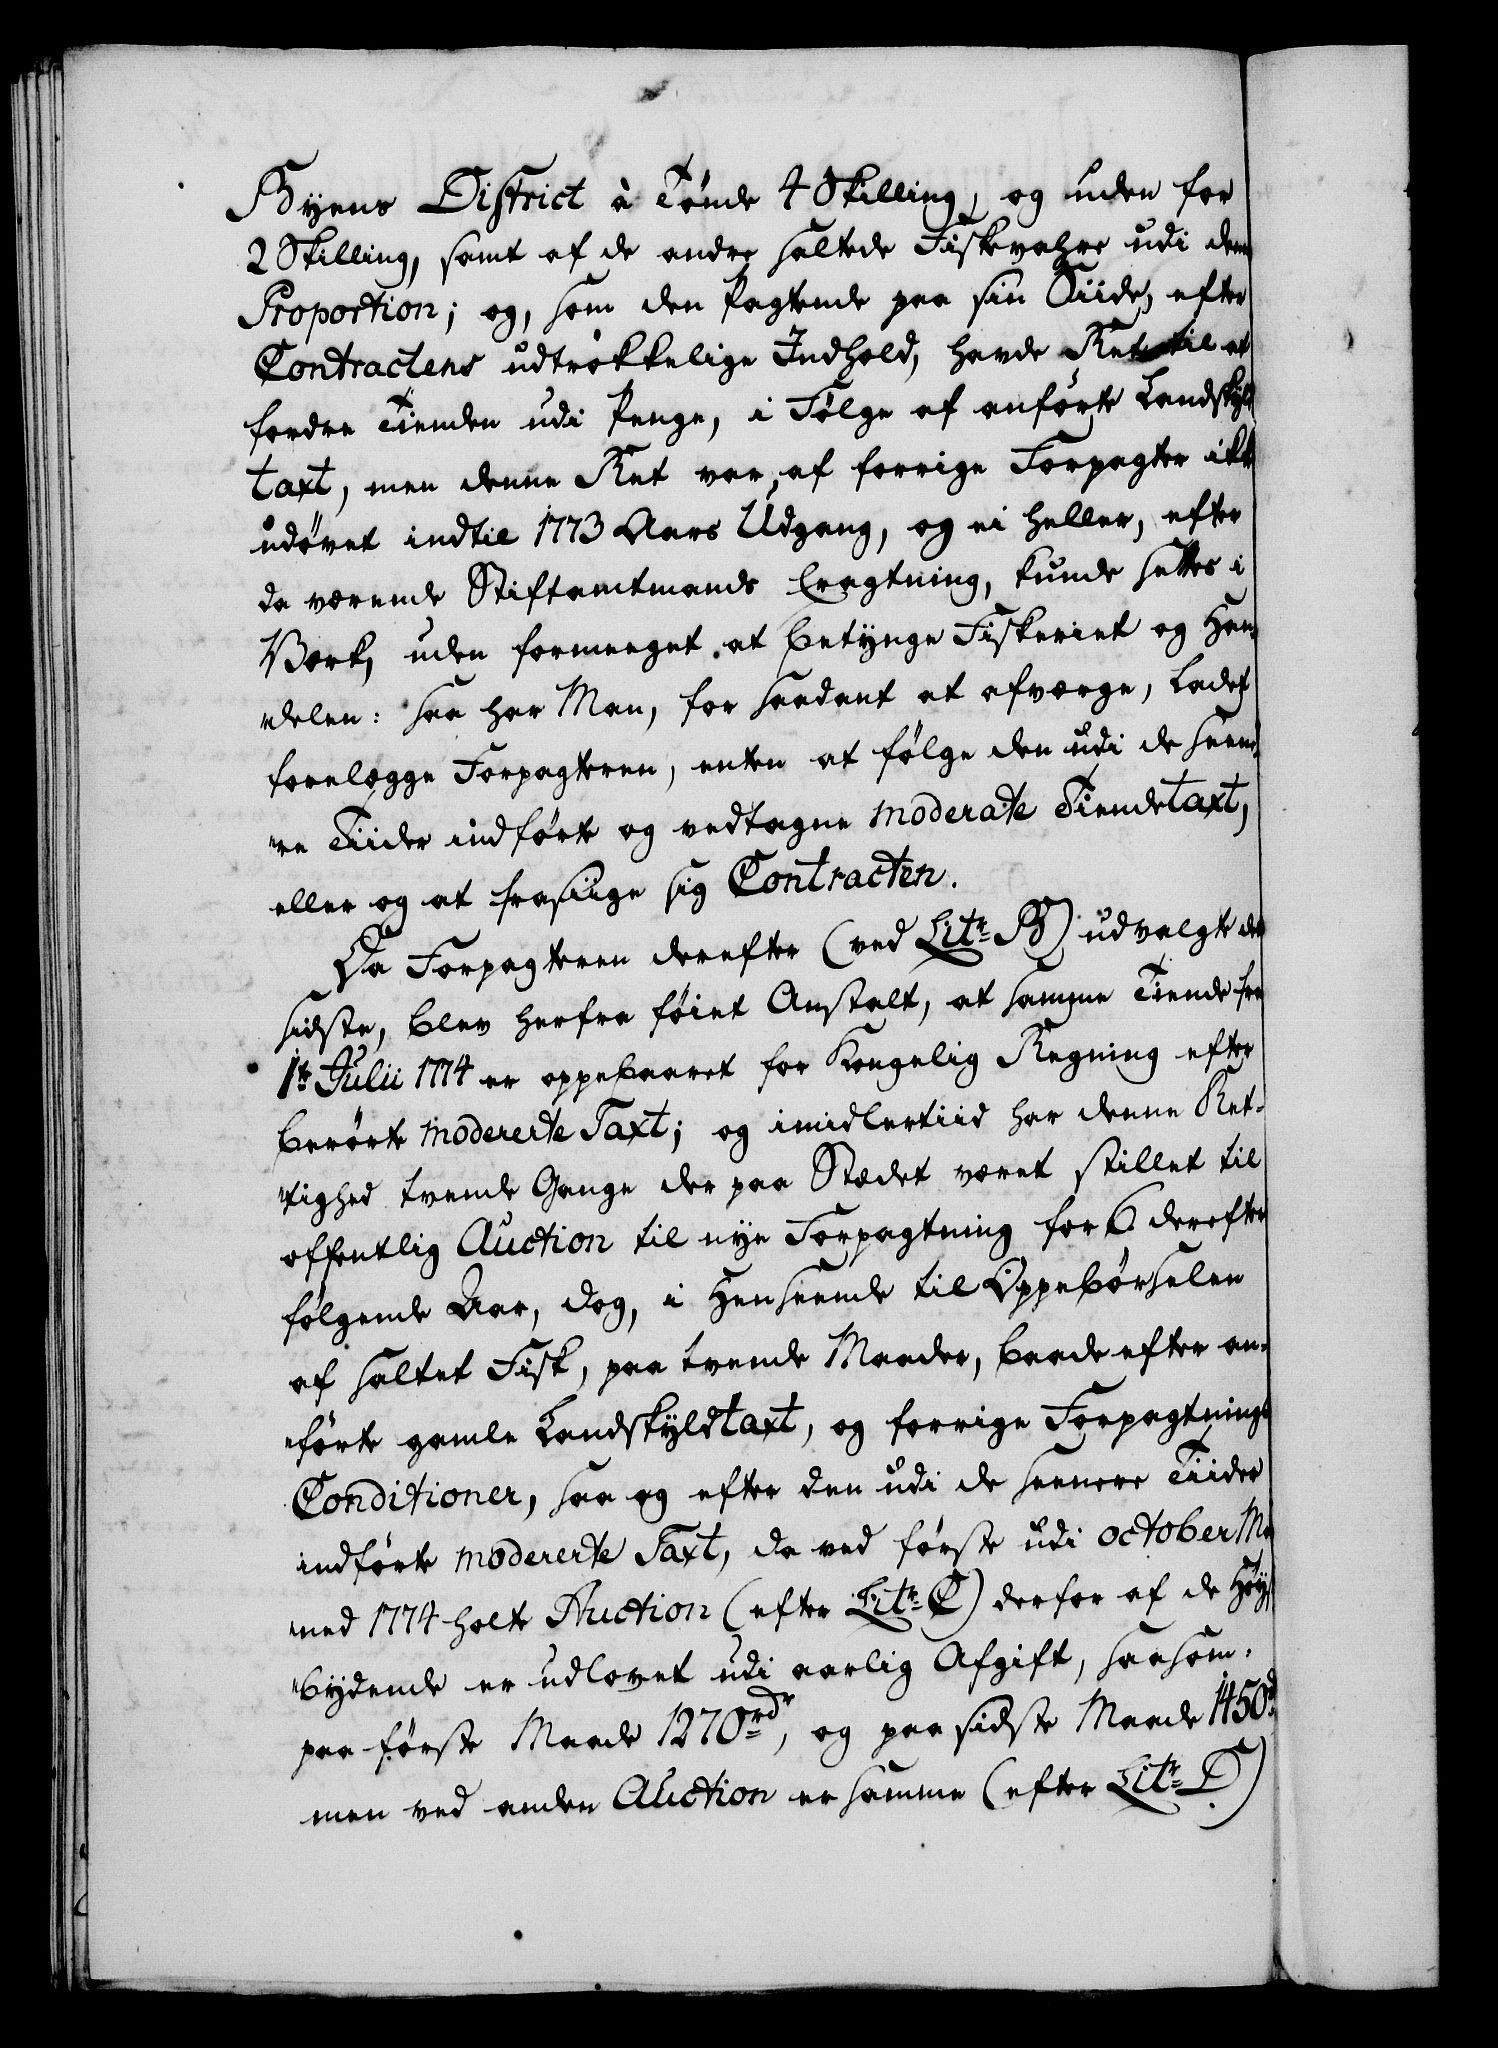 Byens District à Tønde 4 Skilling, og uden for
2 Skilling, samt af de andre saltede Fiskevahre udi den
Proportion; og, som den Pagtende paa sin Siide, efter
Contractens udtrøkkelige Indhold, havde Ret til at
fordre Tienden udi Penge, i Følge af anførte Landskyld
taxt, men denne Ret var, af forrige Forpagter ikke
udøvet indtil 1773 Aars Udgang, og ei heller, efter
da værende Stiftamtmands Eragtning, kunde sættes i
Værk, uden formeeget at betynge Fiskeriet og Han-
delen: saa har Man, for saadant at afværge, ladet
forelægge Forpagteren, enten at følge den udi de seene-
re Tiider indførte og vedtagne moderate Tiendetaxt,
eller og at frasiige sig Contracten.
Da Forpagteren derefter (ved Litr. B) udvalgte det
sidste, blev herfra føiet Anstalt, at samme Tiende fra
1te Julii 1774 er oppebaaret for Kongelig Regning efter
berørte modererte Taxt; og imidlertiid har denne Ret-
tighed tvende Gange der paa Stædet været stillet til
offentlig Auction til nye Forpagtning for 6 derefter
følgende Aar, dog, i Henseende til Oppebørselen
af saltet Fisk, paa tvende Maader, baade efter an-
førte gamle Landskyldtaxt, og forrige Forpagtnings
Conditioner, saa og efter den udi de seenere Tiider
indførte modererte Taxt, da ved første udi october Ma-
ned 1774 holte Auction (efter Litr. C) derfor af de Høyst-
bydende er udlovet udi aarlig Afgift, saasom:
paa første Maade 1270 rdr, og paa sidste Maade 1450 rd
men ved anden Auction er samme (efter Litr. D)